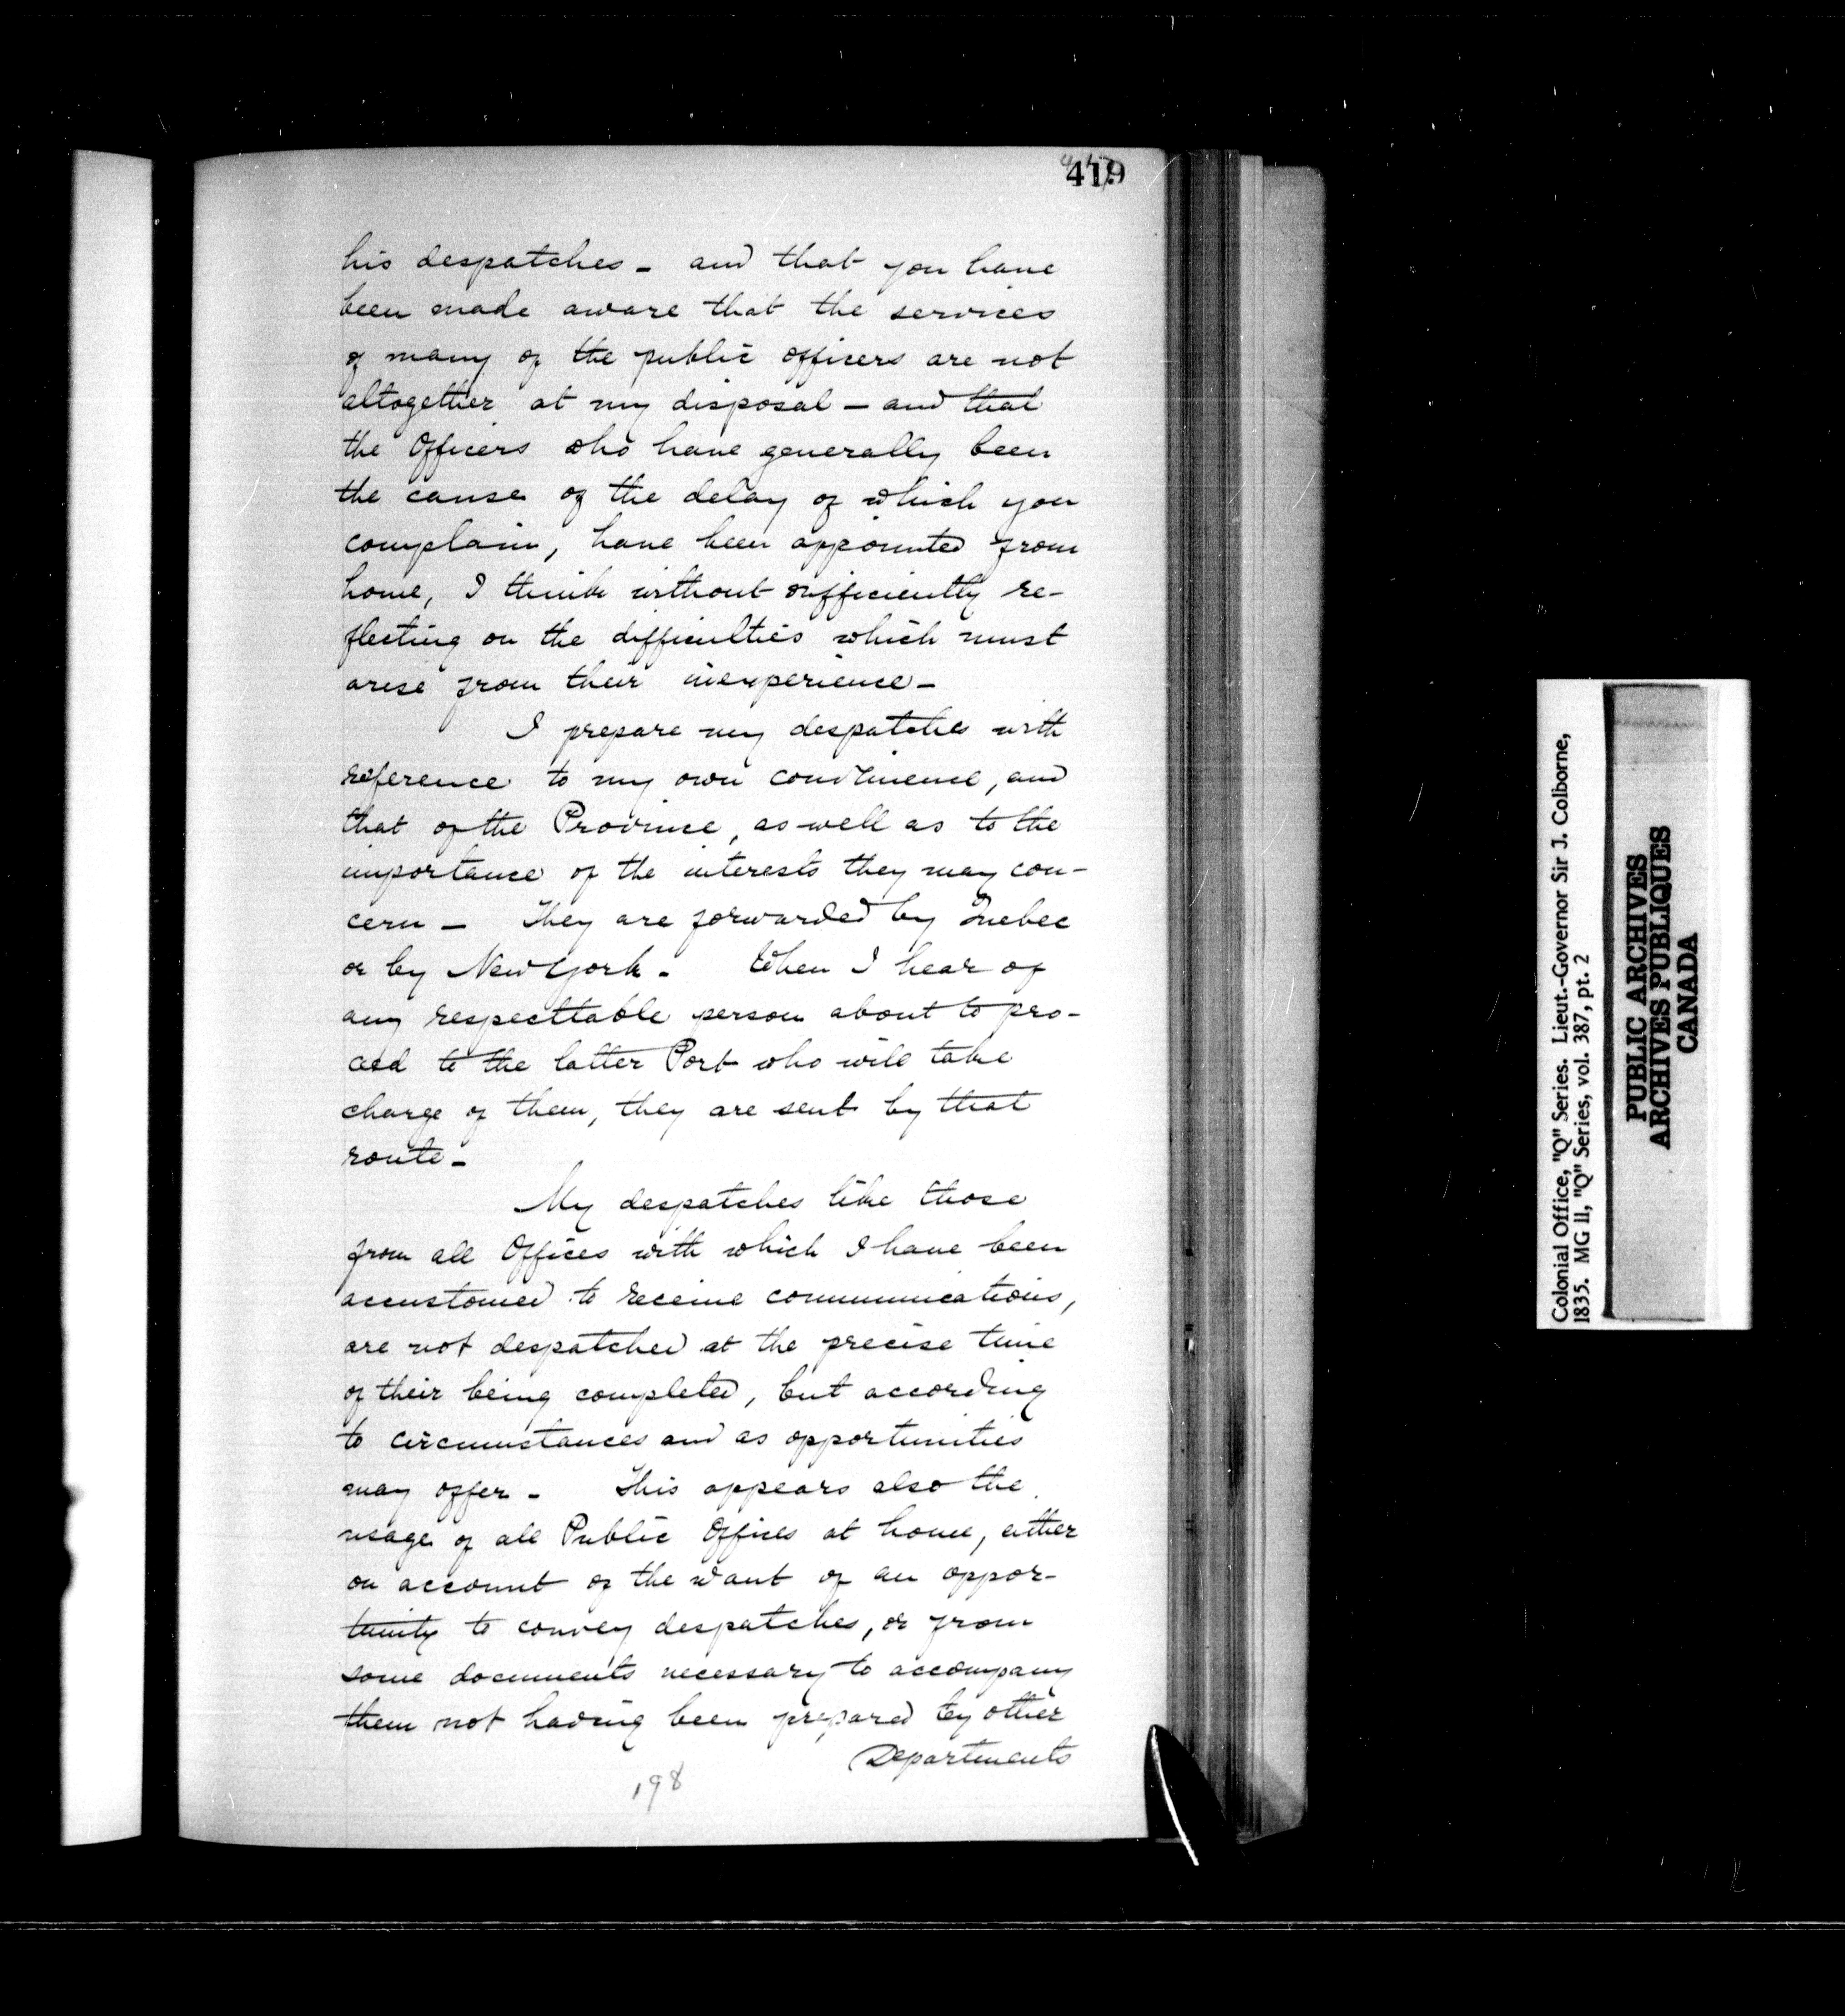 419
his despatches - and that you have
been made aware that the services
of many of the public officers are not
altogether at my disposal - and that
the Officers who have generally been
the cause of the delay of which you
complain, have been appointed from
home, I think without sufficiently re-
flecting on the difficulties which must
arise from their inexperience -
I prepare my despatches with
reference to my own convenience, and
that of the Province, as well as to the
importance of the interests they may con-
cern - They are forwarded by Quebec
or by New York - When I hear of
any respecttable person about to pro-
ceed to the latter Port who will take
charge of them, they are sent by that
route -
My despatches like those
from all Offices with which I have been
accustomed to receive communications,
are not despatched at the precise time
of their being completed, but according
to circumstances and as opportunities
may offer - This appears also the
usage of all Public Offices at home, either
on account of the want of an oppor-
tunity to convey despatches, or from
some documents necessary to accompany
them not having been prepared by other
Departments
198
Colonial Office, "Q" Series. Lieut.-Governor Sir J. Colborne,
1835. MG 11, "Q" Series, vol. 387, pt. 2
PUBLIC ARCHIVES
ARCHIVES PUBLIQUES
CANADA